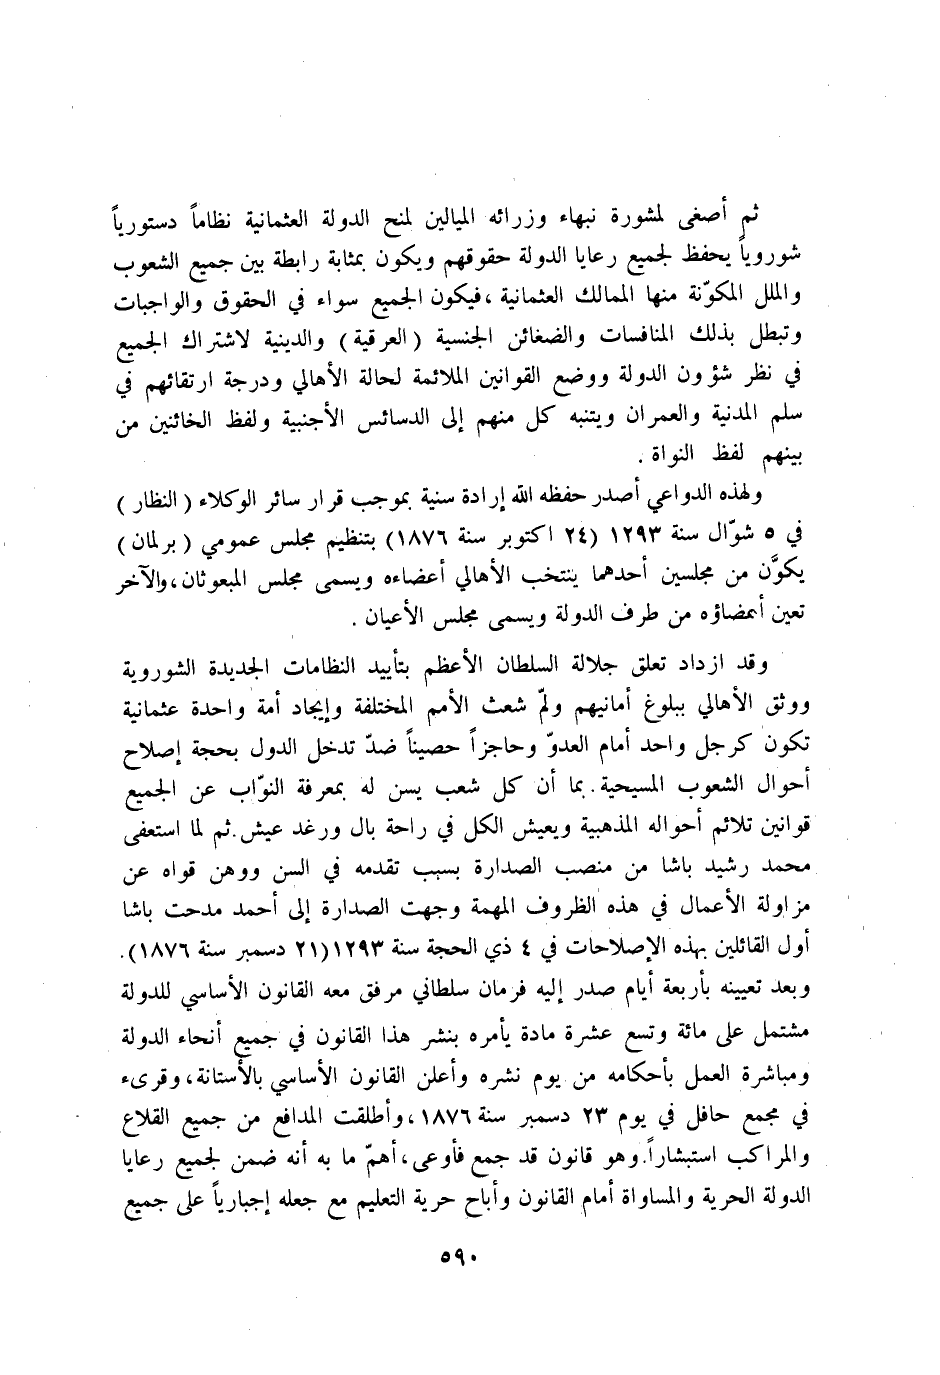 ثم أصغى لمشورة نبهاء وزرائه الميالين لمنح الدولة العثمانية نظاماً دستورياً
شوروياً يحفظ لجميع رعايا الدولة حقوقهم ويكون بمثابة رابطة بين جميع الشعوب
والملل المكوّنة منها الممالك العثمانية ، فيكون الجميع سواء في الحقوق والواجبات
وتبطل بذلك المنافسات والضغائن الجنسية ( العرقية ) والدينية لاشتراك الجميع
في نظر شؤون الدولة ووضع القوانين الملائمة لحالة الأهالي ودرجة ارتقائهم في
سلم المدنية والعمران ويتنبه كل منهم إلى الدسائس الأجنبية ولفظ الخائنين من
بينهم لفظ النواة .
ولهذه الدواعي أصدر حفظه الله إرادة سنية بموجب قرار سائر الوكلاء ( النظار )
في ٥ شوّال سنة ١٢٩٣ (٢٤ اكتوبر سنة ١٨٧٦) بتنظيم مجلس عمومي ( برلمان )
يكوَّن من مجلسين أحدهما ينتخب الأهالي أعضاءه ويسمى مجلس المبعوثان ، والآخر
تعين أعضاؤه من طرف الدولة ويسمى مجلس الأعيان .
وقد ازداد تعلق جلالة السلطان الأعظم بتأييد النظامات الجديدة الشوروية
ووثق الأهالي ببلوغ أمانيهم ولمّ شعث الأمم المختلفة وإيجاد أمة واحدة عثمانية
تكون كرجل واحد أمام العدوّ وحاجزاً حصيناً ضدّ تدخل الدول بحجة إصلاح
أحوال الشعوب المسيحية . بما أن كل شعب يسن له بمعرفة النوّاب عن الجميع
قوانين تلائم أحواله المذهبية ويعيش الكل في راحة بال ورغد عيش . ثم لما استعفى
محمد رشيد باشا من منصب الصدارة بسبب تقدمه في السن ووهن قواه عن
مزاولة الأعمال في هذه الظروف المهمة وجهت الصدارة إلى أحمد مدحت باشا
أول القائلين بهذه الإصلاحات في ٤ ذي الحجة سنة ١٢٩٣ (٢١ دسمبر سنة ١٨٧٦) .
وبعد تعيينه بأربعة أيام صدر إليه فرمان سلطاني مرفق معه القانون الأساسي للدولة
مشتمل على مائة وتسع عشرة مادة يأمره بنشر هذا القانون في جميع أنحاء الدولة
ومباشرة العمل بأحكامه من يوم نشره وأعلن القانون الأساسي بالأستانة ، وقرىء
في مجمع حافل في يوم ٢٣ دسمبر سنة ١٨٧٦ ، وأطلقت المدافع من جميع القلاع
والمراكب استبشاراً . وهو قانون قد جمع فأوعى ، أهمّ ما به أنه ضمن لجميع رعايا
الدولة الحرية والمساواة أمام القانون وأباح حرية التعليم مع جعله إجبارياً على جميع
٥٩٠